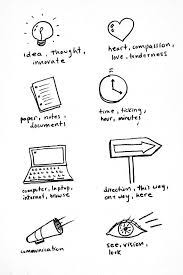 idea, thought,
innovate
heart, compassion,
love, tenderness
paper, notes,
documents
time, ticking,
hour, minutes
computer, laptop,
internet, browse
direction, this way,
one way, here
communication
see, vision,
look